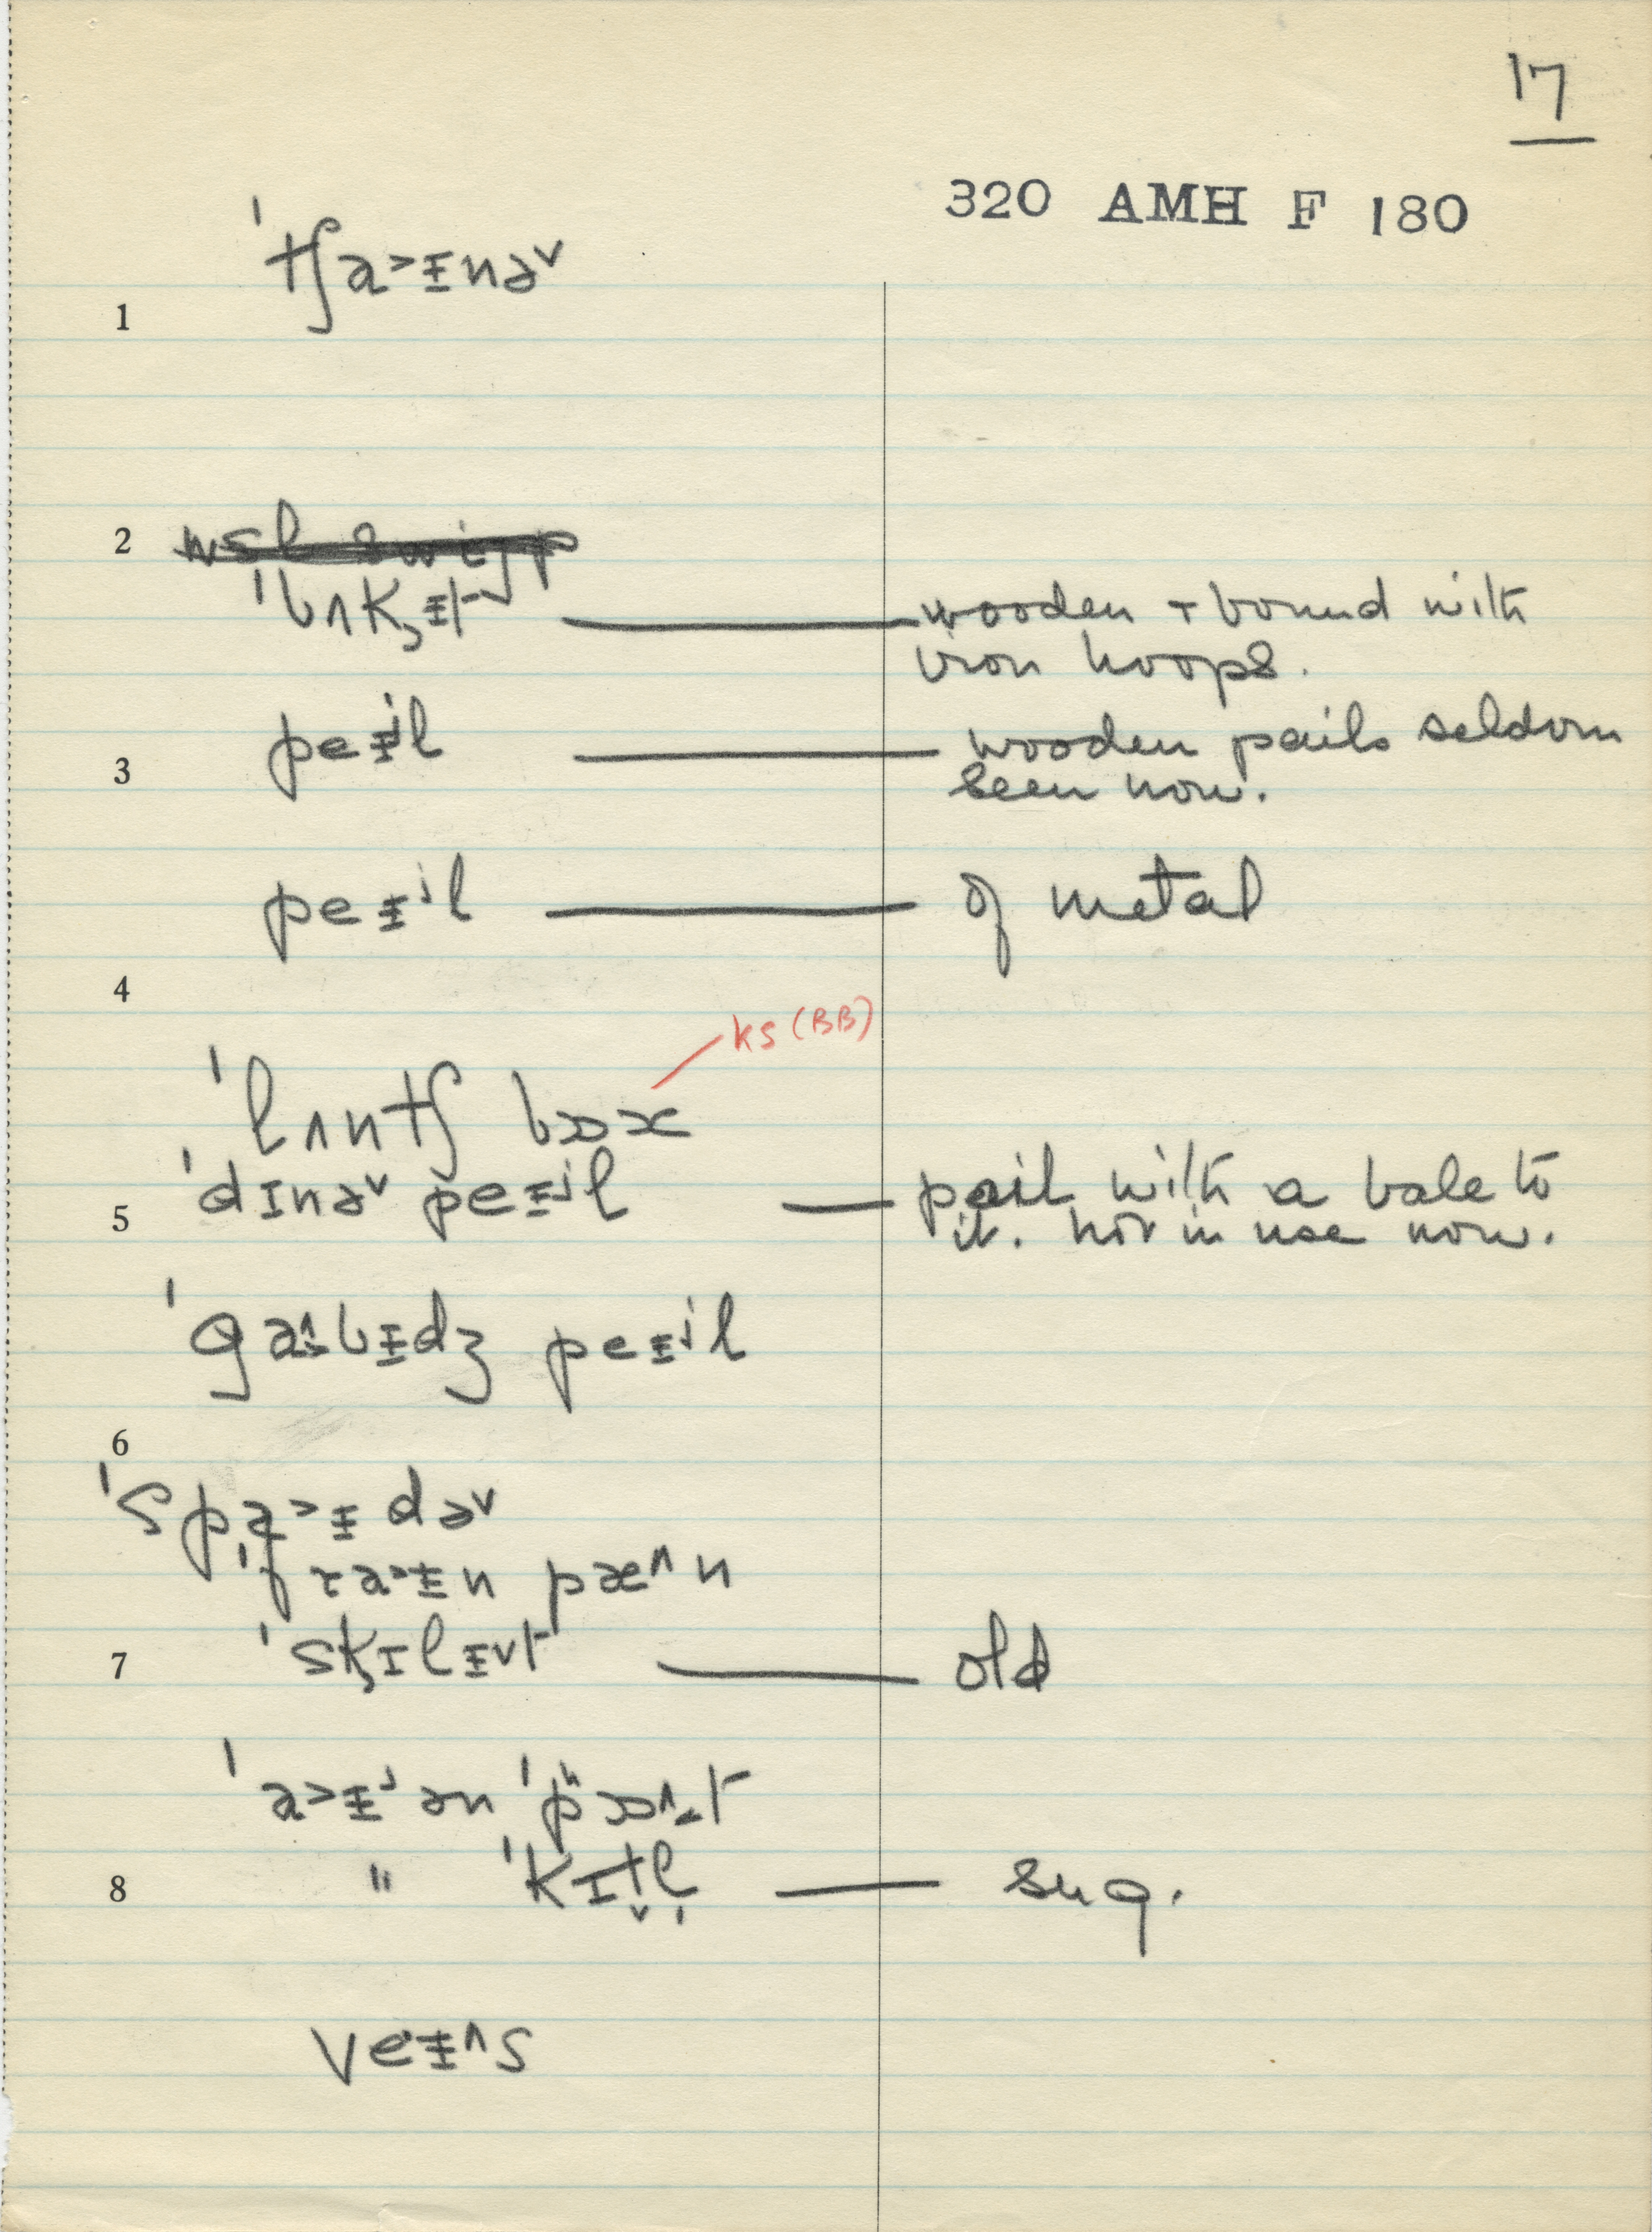 17
320 AMH F 180
ˈtʃa˃ᵻnə˅
1
2
ˈbʌk̡ᵻt wooden + bound with
iron hoops.
peᵻʲl wooden pails seldom
3 seen now.
peᵻʲl of metal
4
ks (BB)
ˈlʌntʃ bɒx
ˈdɪnə˅ peᵻʲl pail with a bale to
5 it. not in use now.
ˈgaˑ˄bᵻdʒ peᵻʲl
6
ˈspa˃ᵻdə˅
ˈfra˃ᵻn pæ˄n
7 ˈsk̡ɪlᵻ˅t old
ˈa˃ᵻʲən ˈpʰɒ˄t
8 " ˈkɪt̬l̩ sug.
veᵻ˄s